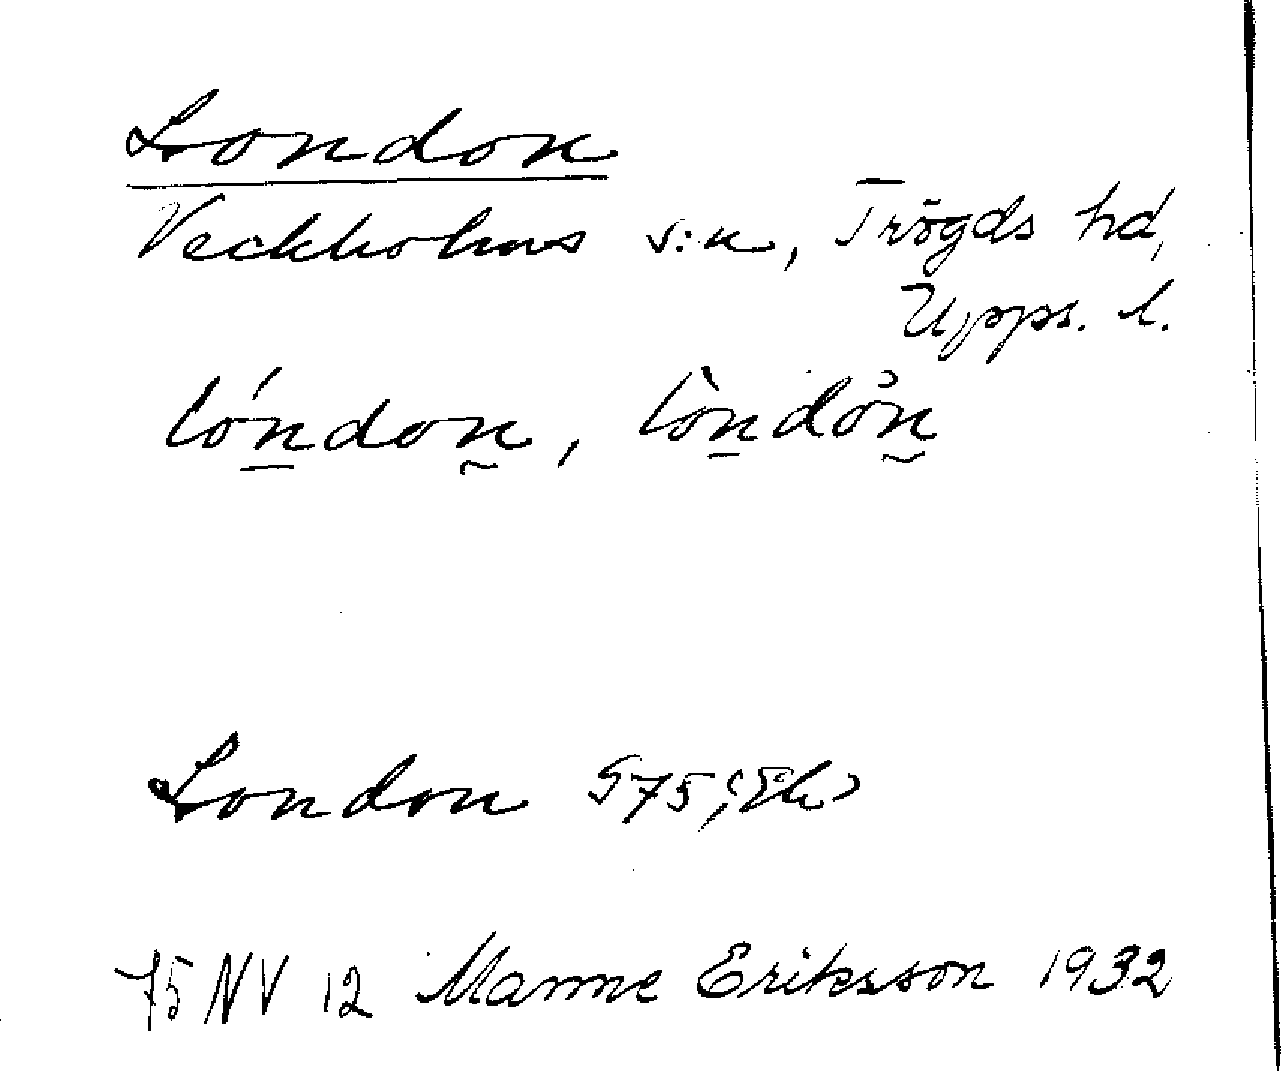 London
Veckholms s:n, Trögds hd,
Upps. l.
lóndon, lòndån
London G75;
75 NV 12 Manne Eriksson 1932